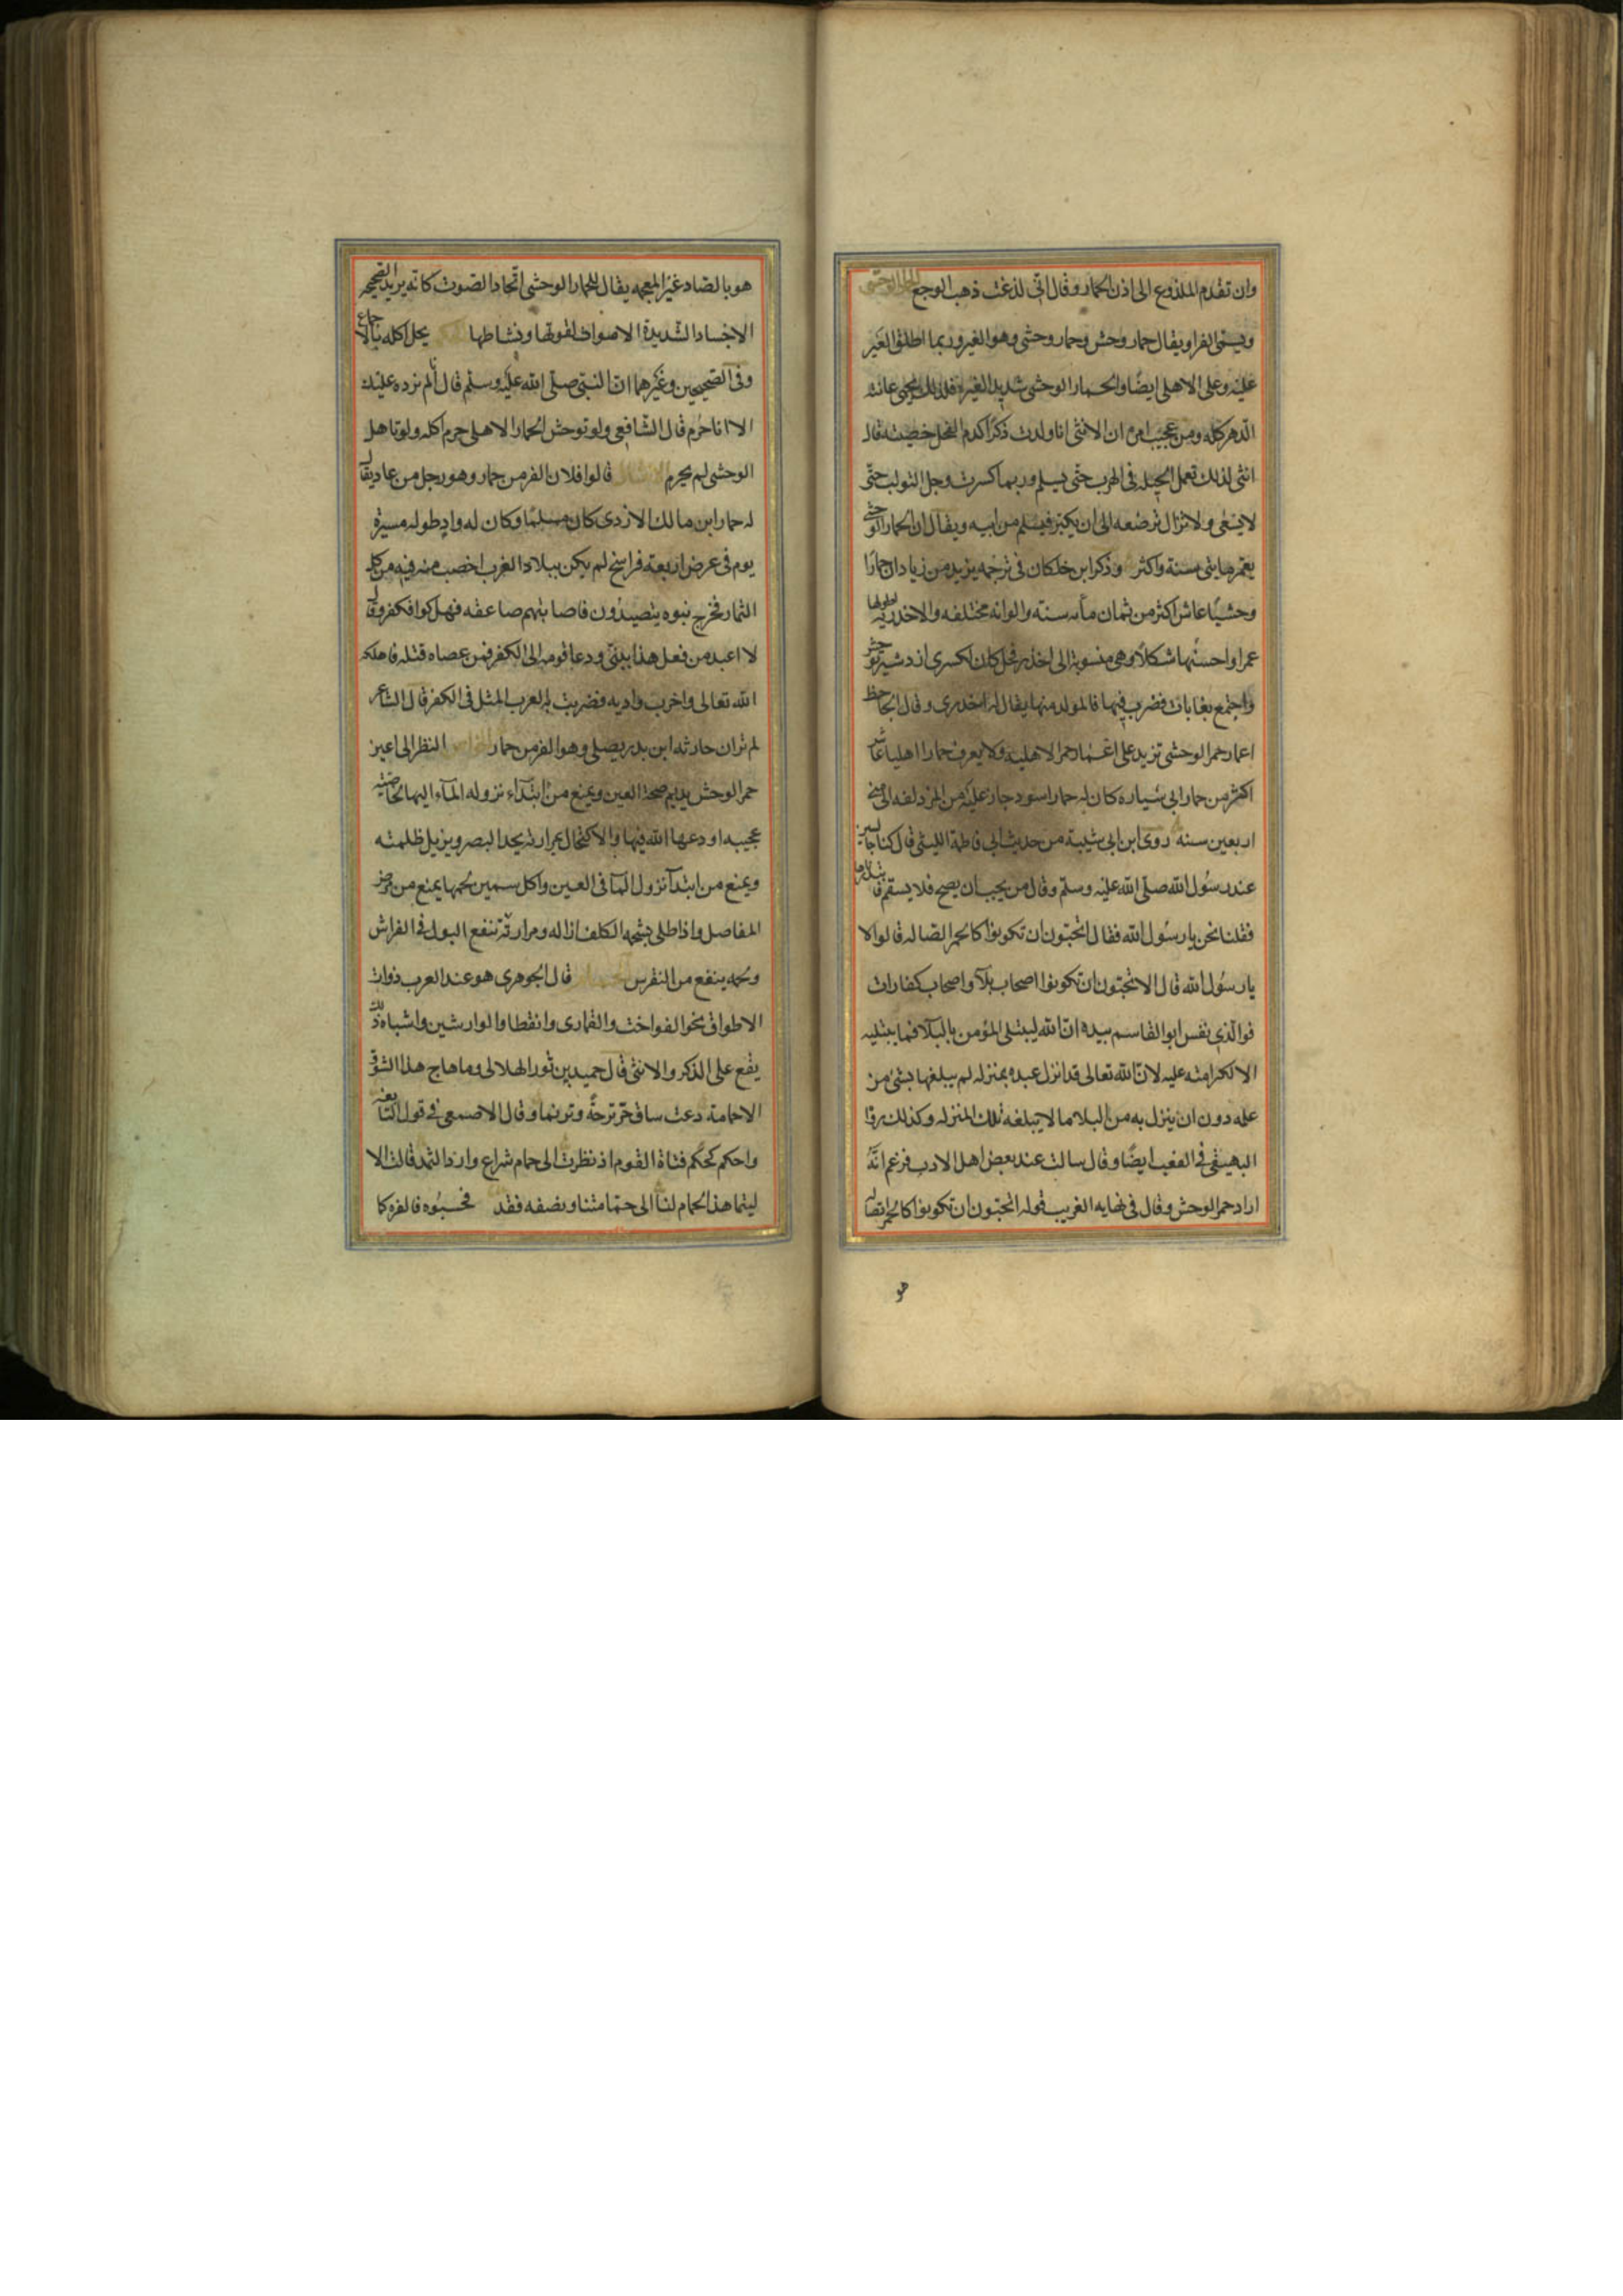 وان تقدم الملذوع الى اذن الحمار وقال انى لذغت ذهب الوجع الحمار الوحشى
ويسمى الفرا ويقال حمار وحش وحمار وحشى وهو العير وربما اطلق العير
عليه وعلى الاهلى ايضًا والحمار الوحشى شديد الغيرة فلذلك يحمى عانته
الدهر كله ومن عجيب امره ان الانثى اذا ولدت ذكرًا كدم الفحل خصيته قال
انثى لذلك تعمل الحيله فى الهرب حتى يسلم وربما كسرت رجل التولب حتى
لا يسعى ولا تزال ترضعه الى ان يكبر فيسلم من ابيه ويقال ان الحمار الوحشى
يعمر مايتى سنة واكثر وذكر ابن خلكان فى ترجمه يزيد من زياد ان حمارا
وحشيًا عاش اكثر من ثمان مأيه سنة والوانه مختلفه والاخدريه اطولها
عمرا واحسنها شكلاً وهى منسوبة الى اخدر فحل كان لكسرى ازدشير توحش
واجتمع بغابات فضرب فيها فالمولد منها يقال له اخدرى وقال الجاحظ
اعمار حمر الوحشى تزيد على اعمار حمر الاهلية ولا يعرف حمارا اهليا عاش
اكثر من حمار ابى سياره كان له حمار اسود جاز عليه من المزدلفه الى منى
اربعين سنه روى ابن ابى شيبة من حديث ابى فاطمة الليثى قال كنا جالسين
عند رسُول الله صلى الله عليه وسلم وقال من يحب ان يصح فلا يسقم فابتدرناها
فقلنا نحن يا رسُول الله فقال اتحبون ان تكونوا كالحمر الصاله قالوا لا
يا رسُول الله قال الا تحبون ان تكونوا اصحاب بلآ واصحاب كفارات
فوالذى نفس ابو القاسم بيده انّ الله ليبتلى المؤمن بالبلآ فما يبتليه
الا لكرامته عليه لانّ الله تعالى قد انزل عبده بمنزله لم يبلغها بشئ من
عمله دون ان ينزل به من البلا ما لا يبلغه تلك المنزله وكذلك روا
البهيقى فى الشعب ايضًا وقال سالت عنه بعض اهل الادب فزعم انّه
اراد حمر الوحش وقال فى نهايه الغريب قوله اتحبون ان تكونوا كالحمر الصاله
هو
هو بالصاد غير المعجمه يقال للحمار الوحشى الحاد الصوت كانه يريد الصحيحه
الاجساد الشديدة الاصوات لقوتها ونشاطها يحل اكله بالاجماع
وفى الصحيحين وغيرهما ان النبى صلى الله عليه وسلم قال ألم نرده عليك
الا انا حُرم قال الشافعى ولو توحش الحمار الاهلى حرم اكله ولو تاهل
الوحشى لم يحرم الامثال قالوا فلان اكفر من حمار وهو رجل من عاد يقال
له حمار ابن مالك الازدى كان مسلمًا وكان له واد طوله مسيرة
يوم فى عرض اربعة فراسخ لم يكن ببلاد العرب اخصب منه فيه من كل
الثمار فخرج بنوه يتصيدُون فاصابتهم صاعقه فهلكوا فكفر وقال
لا اعبد من فعل هذا ببنىّ ودعا قومه الى الكفر فمن عصاه قتله فاهلكه
الله تعالى واخرب واديه فضربت به العرب المثل فى الكفر قال الشاعر
لم تر ان حارثه ابن بدر يصلى وهو اكفر من حمار الخواص النظر الى اعين
حمر الوحش يديم صحة العين ويمنع من ابتدآء نزوله المآء اليها بخاصية
عجيبه اودعها الله فيها والاكتحال بمرارته يحد البصر ويزيل ظلمته
ويمنع من ابتدآ نزول المآ فى العين واكل سمين لحمها يمنع من مرض
المفاصل واذا طلى بشحمه الكلف ازاله ومرارته تنفع البول فى الفراش
ولحمه ينفع من النقرس الحمام قال الجوهرى هو عند العرب ذوات
الاطواق نحو الفواخت والقمارى والقطا والوارشين واشباه ذلك
يقع على الذكر والانثى قال حميد بن ثور الهلالى وما هاج هذا الشوق
الا حمامة دعت ساق حرّ ترحةً وترنما وقال الاصمعى فى قول النابغه
واحكم كحكم فتاة القوم اذ نظرت الى حمام شراع وارد الثمد قالت الا
ليتما هذا الحمام لنا الى حمامتنا ونصفه فقد فحسبُوه فالفوه كا